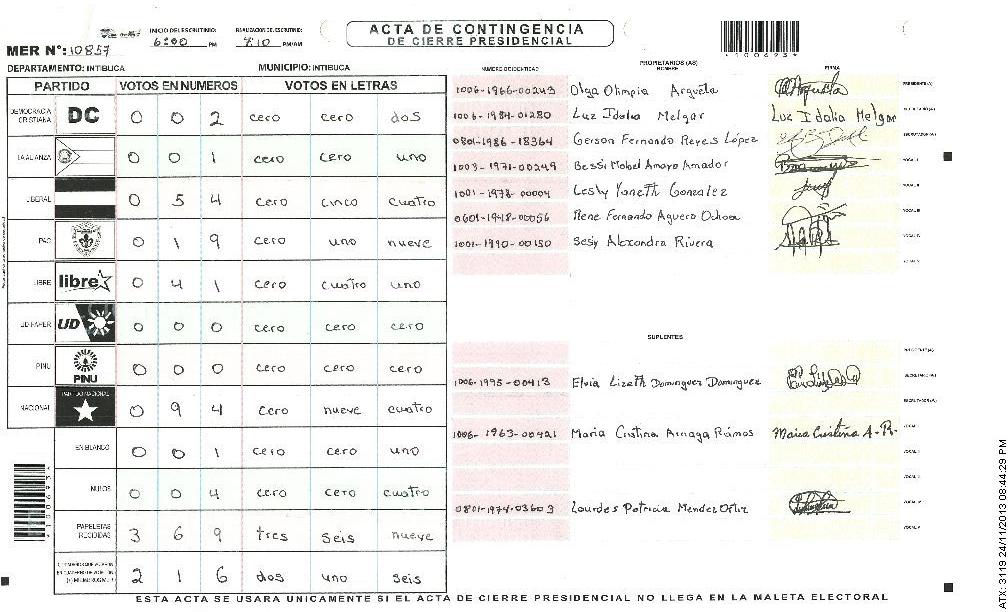 ACTA DE CONTINGENCIA
DE CIERRE PRESIDENCIAL
INICIO DEL ESCRUTINIO: 6:00 PM
FINALIZACION DE ESCRUTINIO: 9:10 PM/AM
*110693*
MER N°: 10857
DEPARTAMENTO: INTIBUCA MUNICIPIO: INTIBUCA
PARTIDO VOTOS EN NUMEROS VOTOS EN LETRAS
DEMOCRACIA CRISTIANA DC 0 0 2 cero cero dos
LA ALIANZA 0 0 1 cero cero uno
LIBERAL 0 5 4 cero cinco cuatro
PAC 0 1 9 cero uno nueve
LIBRE libre 0 4 1 cero cuatro uno
UD-FAPER UD 0 0 0 cero cero cero
PINU PINU 0 0 0 cero cero cero
NACIONAL PARTIDO NACIONAL 0 9 4 cero nueve cuatro
EN BLANCO 0 0 1 cero cero uno
NULOS 0 0 4 cero cero cuatro
PAPELETAS RECIBIDAS 3 6 9 tres seis nueve
2 1 6 dos uno seis
PROPIETARIOS (AS)
NUMERO DE IDENTIDAD NOMBRE FIRMA
1006-1966-00243 Olga Olimpia Argueta PRESIDENTE(A)
1006-1984-01280 Luz Idalia Melgar Luz Idalia Melgar SECRETARIO(A)
0801-1986-18364 Gerson Fernando Reyes López ESCRUTADOR(A)
1003-1971-00249 Bessi Mabel Amaya Amador VOCAL I
1001-1978-00004 Lesly Yaneth Gonzalez VOCAL II
0601-1948-00056 Rene Fernando Aguero Ochoa VOCAL III
1001-1990-00150 Sesy Alexandra Rivera VOCAL IV
VOCAL V
SUPLENTES
PRESIDENTE(A)
1006-1995-00413 Elvia Lizeth Dominguez Dominguez SECRETARIO(A)
ESCRUTADOR(A)
1006-1963-00421 Maria Cristina Arriaga Ramos Maria Cristina A-R. VOCAL I
VOCAL II
VOCAL III
0801-1974-03603 Lourdes Patricia Mendez Ortiz VOCAL IV
VOCAL V
*110693*
ESTA ACTA SE USARA UNICAMENTE SI EL ACTA DE CIERRE PRESIDENCIAL NO LLEGA EN LA MALETA ELECTORAL
ATX 3119 24/11/2013 08:44:29 PM